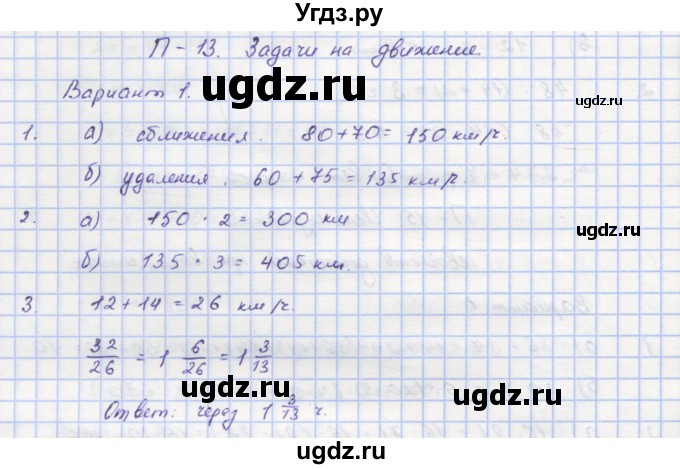 Угдз.ру
П-13. Задачи на движение.
Вариант 1.
1. а) сближения. 80+70= 150 км/ч.
б) удаления. 60 + 75 = 135 км/ч.
2. а) 150 · 2 = 300 км
б) 135 · 3 = 405 км.
3. 12+14 = 26 км/ч.
32/26 = 1 6/26 = 1 3/13
Ответ: через 1 3/13 ч.
ugdz.ru
ugdz.ru
ugdz.ru
ugdz.ru
ugdz.ru
ugdz.ru
ugdz.ru
ugdz.ru
Угдз.ру